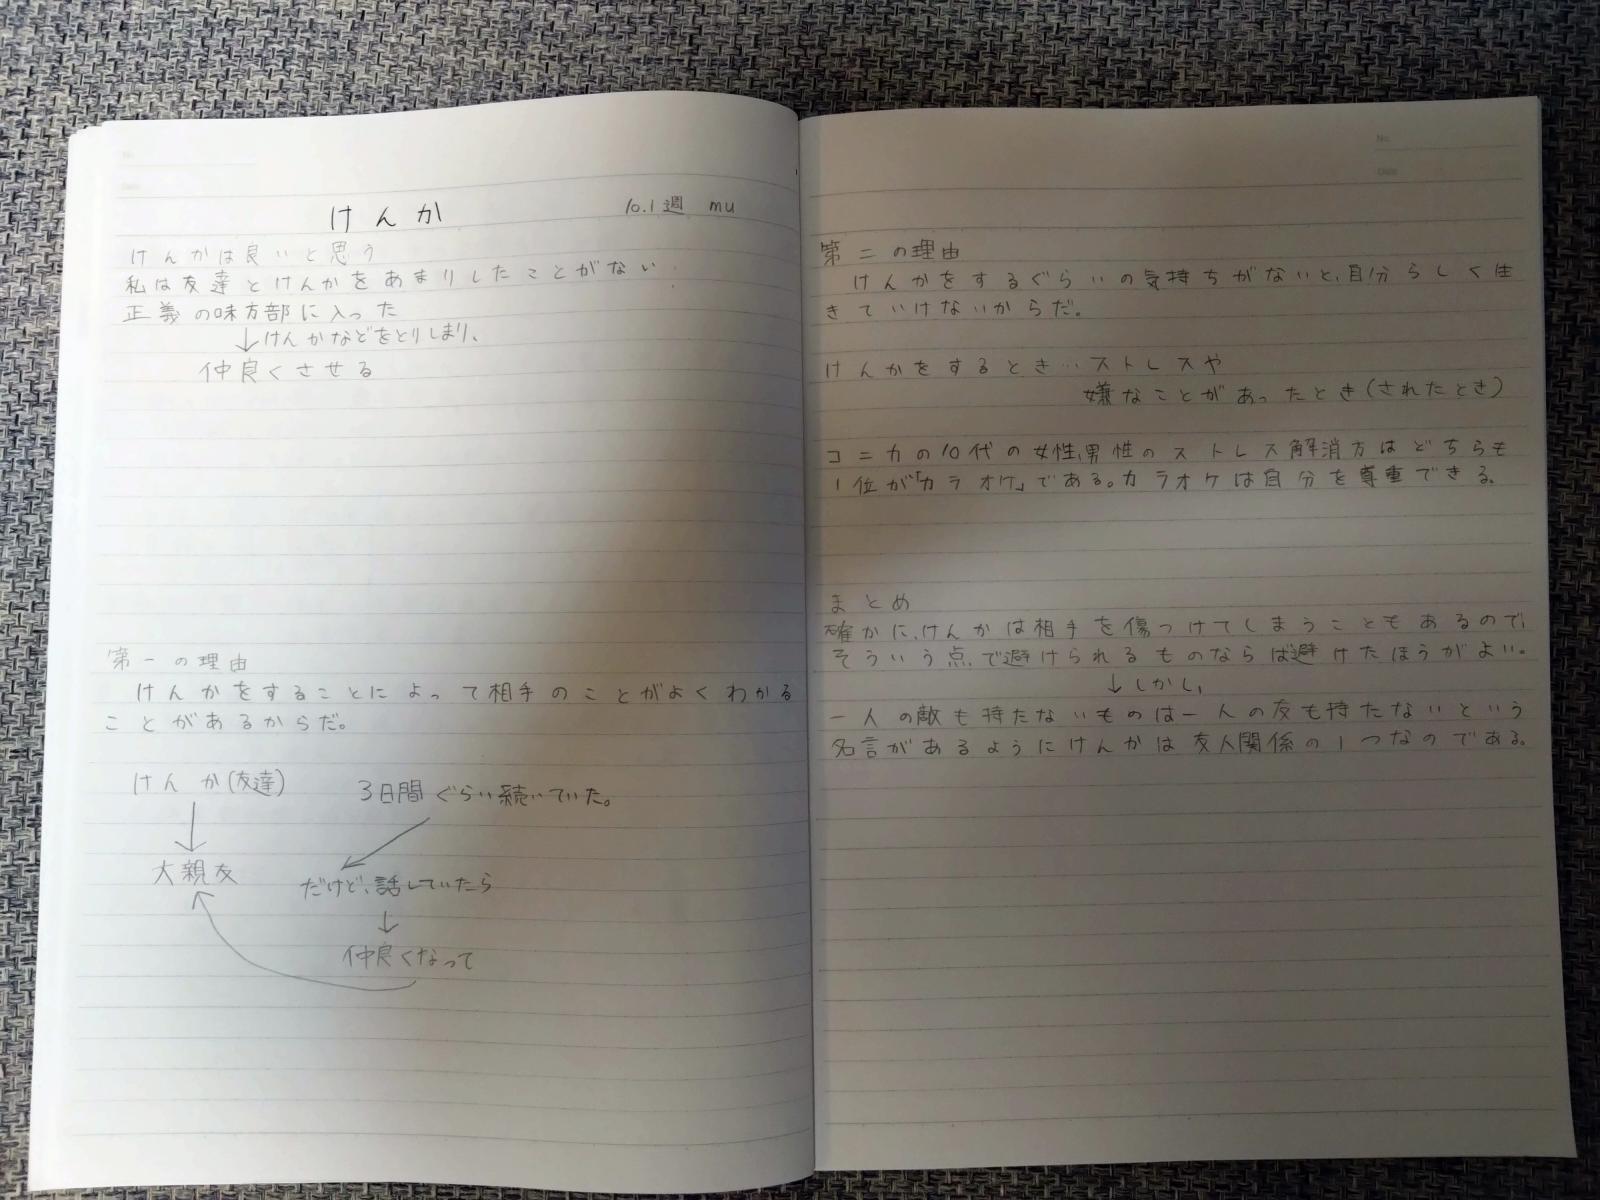 けんか
10.1週 mu
けんかは良いと思う
私は友達とけんかをあまりしたことがない
正義の味方部に入った
↓けんかなどをとりしまり、
仲良くさせる
第一の理由
けんかをすることによって相手のことがよくわかる
ことがあるからだ。
けんか(友達)
3日間ぐらい続いていた。
大親友
だけど、話していたら
↓
仲良くなって
No.
Date
第二の理由
けんかをするぐらいの気持ちがないと、自分らしく生
きていけないからだ。
けんかをするとき…ストレスや
嫌なことがあったとき(されたとき)
コニカの10代の女性、男性のストレス解消方はどちらも
1位が「カラオケ」である。カラオケは自分を尊重できる。
まとめ
確かに、けんかは相手を傷つけてしまうこともあるので、
そういう点で避けられるものならば避けたほうがよい。
↓しかし、
一人の敵も持たないものは一人の友も持たないという
名言があるようにけんかは友人関係の1つなのである。